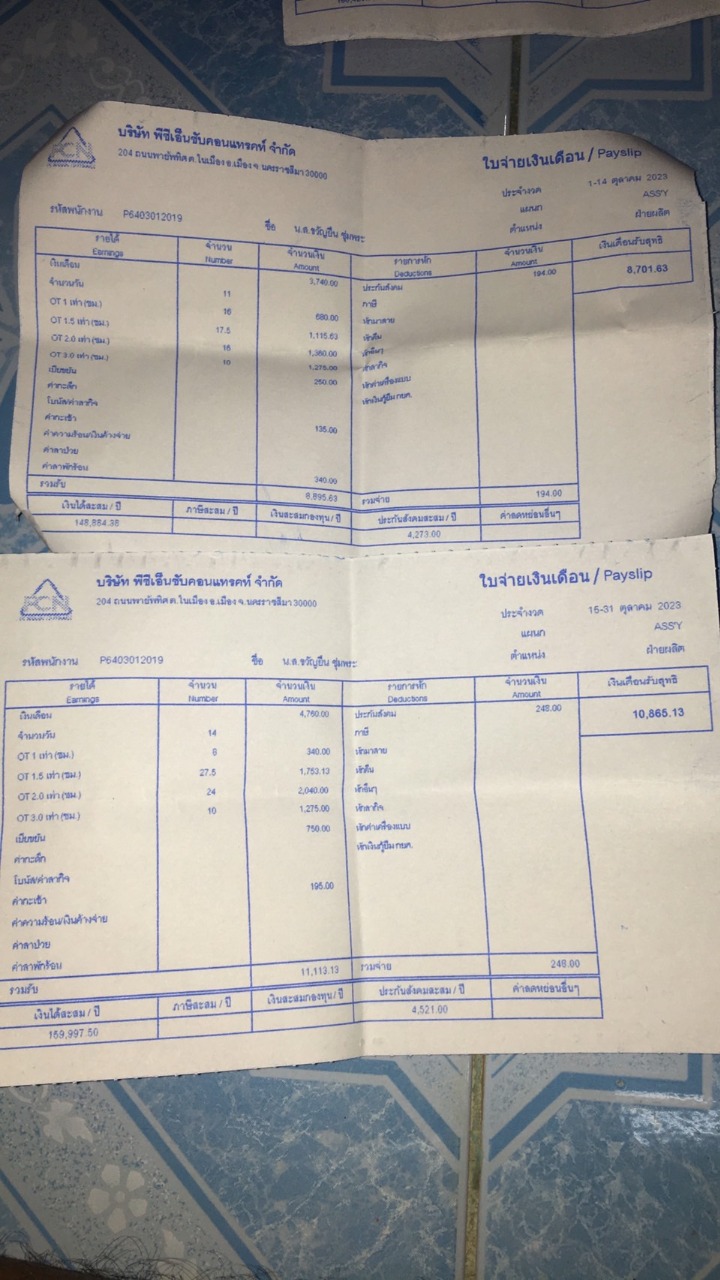 บริษัท พีซีเอ็นซับคอนแทรคท์ จำกัด
204 ถนนพายัพทิศ ต.ในเมือง อ.เมือง จ.นครราชสีมา 30000
ใบจ่ายเงินเดือน / Payslip
ประจำงวด 1-14 ตุลาคม 2023
แผนก ASS'Y
ตำแหน่ง ฝ่ายผลิต
รหัสพนักงาน P6403012019 ชื่อ น.ส.ขวัญยืน ชุ่มพระ
รายได้ จำนวน จำนวนเงิน รายการหัก จำนวนเงิน เงินเดือนรับสุทธิ
Earnings Number Amount Deductions Amount
เงินเดือน 3,740.00 ประกันสังคม 194.00 8,701.63
จำนวนวัน 11 ภาษี
OT 1 เท่า (ชม.) 16 680.00 หักมาสาย
OT 1.5 เท่า (ชม.) 17.5 1,115.63 หักคืน
OT 2.0 เท่า (ชม.) 16 1,360.00 หักอื่นๆ
OT 3.0 เท่า (ชม.) 10 1,275.00 หักลากิจ
เบี้ยขยัน 250.00 หักค่าเครื่องแบบ
ค่ากะดึก หักเงินกู้ยืม กยศ.
โบนัส/ค่าลากิจ
ค่ากะเช้า 135.00
ค่าความร้อน/เงินค้างจ่าย
ค่าลาป่วย
ค่าลาพักร้อน 340.00
รวมรับ 8,895.63 รวมจ่าย 194.00
เงินได้สะสม / ปี ภาษีสะสม / ปี เงินสะสมกองทุน / ปี ประกันสังคมสะสม / ปี ค่าลดหย่อนอื่นๆ
148,884.38 4,273.00
PCN
บริษัท พีซีเอ็นซับคอนแทรคท์ จำกัด
204 ถนนพายัพทิศ ต.ในเมือง อ.เมือง จ.นครราชสีมา 30000
ใบจ่ายเงินเดือน / Payslip
ประจำงวด 15-31 ตุลาคม 2023
แผนก ASS'Y
ตำแหน่ง ฝ่ายผลิต
รหัสพนักงาน P6403012019 ชื่อ น.ส.ขวัญยืน ชุ่มพระ
รายได้ จำนวน จำนวนเงิน รายการหัก จำนวนเงิน เงินเดือนรับสุทธิ
Earnings Number Amount Deductions Amount
เงินเดือน 4,760.00 ประกันสังคม 248.00 10,865.13
จำนวนวัน 14 ภาษี
OT 1 เท่า (ชม.) 8 340.00 หักมาสาย
OT 1.5 เท่า (ชม.) 27.5 1,753.13 หักคืน
OT 2.0 เท่า (ชม.) 24 2,040.00 หักอื่นๆ
OT 3.0 เท่า (ชม.) 10 1,275.00 หักลากิจ
เบี้ยขยัน 750.00 หักค่าเครื่องแบบ
ค่ากะดึก หักเงินกู้ยืม กยศ.
โบนัส/ค่าลากิจ
ค่ากะเช้า 195.00
ค่าความร้อน/เงินค้างจ่าย
ค่าลาป่วย
ค่าลาพักร้อน
รวมรับ 11,113.13 รวมจ่าย 248.00
เงินได้สะสม / ปี ภาษีสะสม / ปี เงินสะสมกองทุน / ปี ประกันสังคมสะสม / ปี ค่าลดหย่อนอื่นๆ
159,997.50 4,521.00